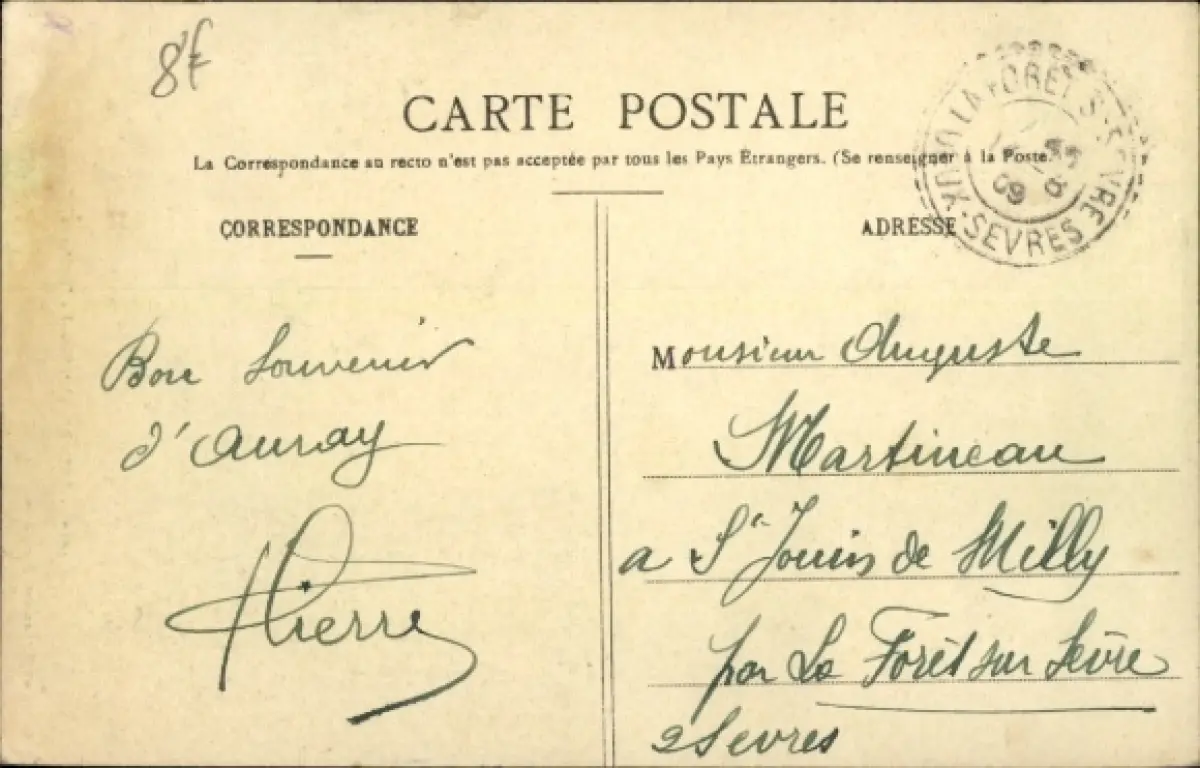 8f
CARTE POSTALE
La Correspondance au recto n'est pas acceptée par tous les Pays Étrangers. (Se renseigner à la Poste.
CORRESPONDANCE
ADRESSE
LA FORET-S-SEVRE
SEVRES
09
Bon Souvenir
d'Auray
Pierre
Monsieur Auguste
Martineau
a St Jouin de Milly
par La Forêt sur Sèvre
2 Sevres